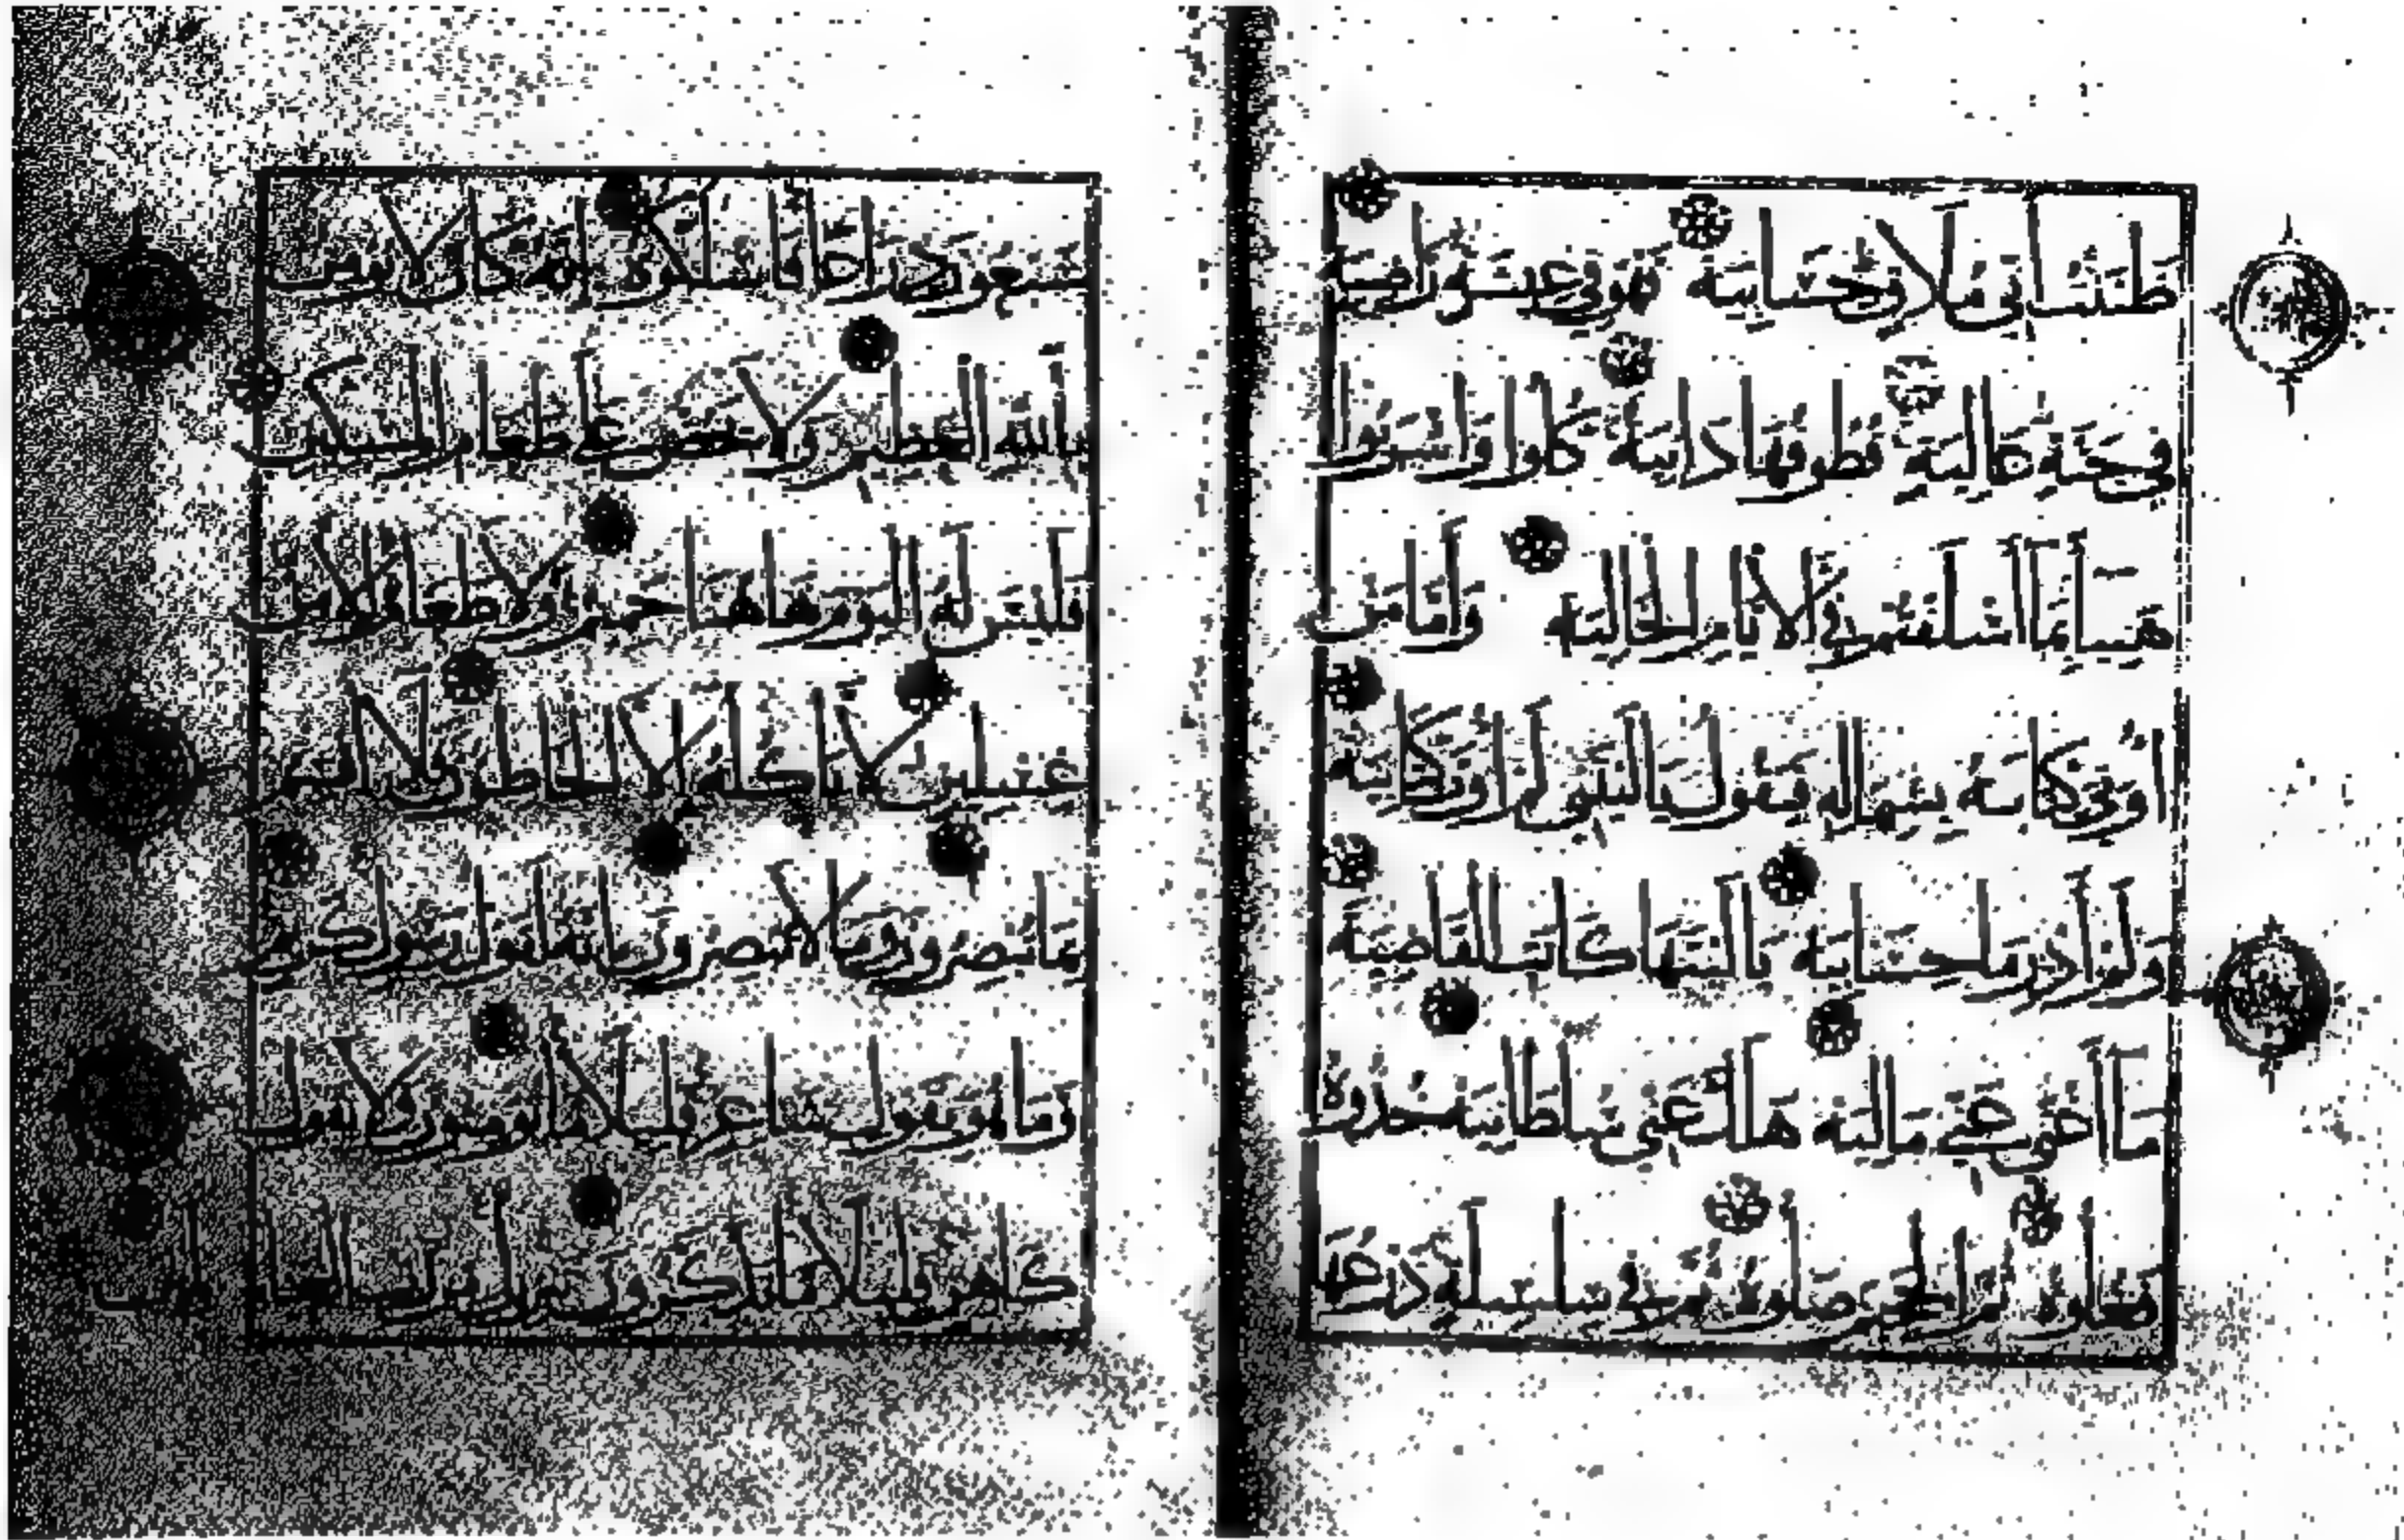 ظننت اني ملاق حسابيه فهو في عيشة راضية
في جنة عالية قطوفها دانية كلوا واشربوا
هنيا بما اسلفتم في الايام الخالية واما من
اوتي كتابه بشماله فيقول يا ليتني لم اوت كتابيه
ولم ادر ما حسابيه يا ليتها كانت القاضية
ما اغنى عني ماليه هلك عني سلطانيه خذوه
فغلوه ثم الجحيم صلوه ثم في سلسلة ذرعها
سبعون ذراعا فاسلكوه انه كان لا يومن
بالله العظيم ولا يحض على طعام المسكين
فليس له اليوم هاهنا حميم ولا طعام الا من
غسلين لا ياكله الا الخاطون فلا اقسم
بما تبصرون وما لا تبصرون انه لقول رسول كريم
وما هو بقول شاعر قليلا ما تومنون ولا بقول
كاهن قليلا ما تذكرون تنزيل من رب العالمين